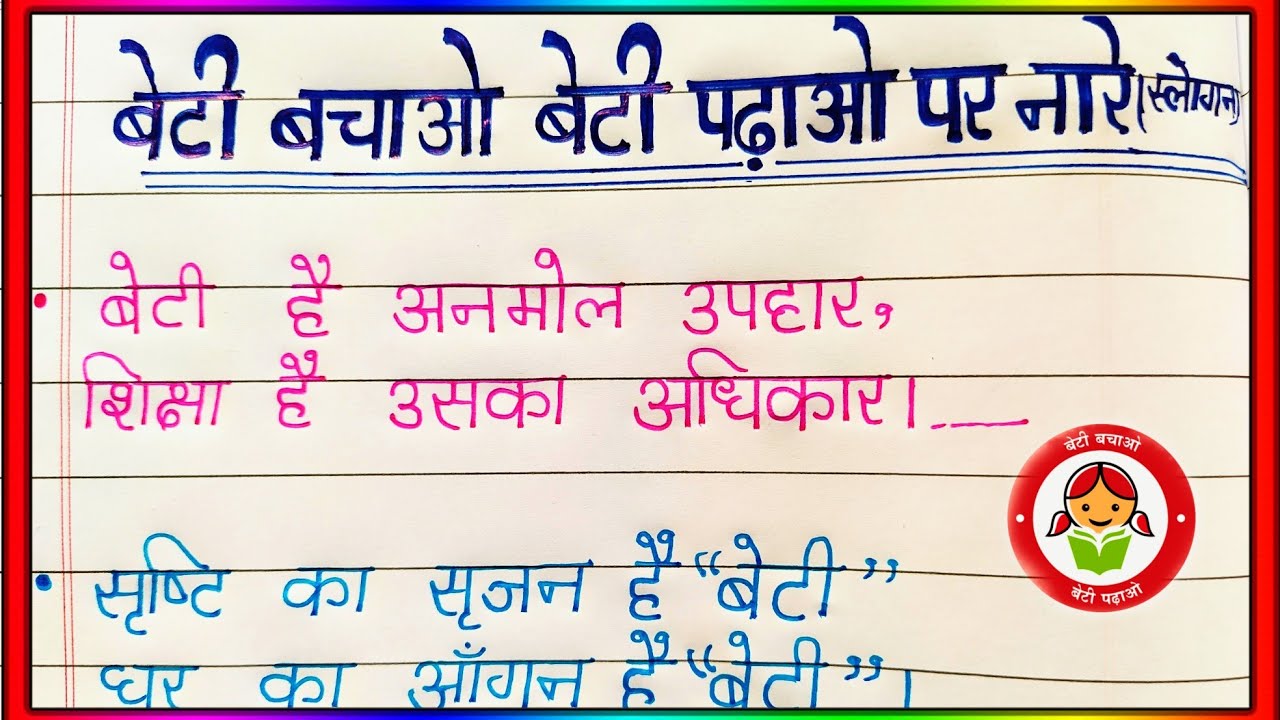 बेटी बचाओ बेटी पढ़ाओ पर नारे(स्लोगन)
• बेटी है अनमोल उपहार,
शिक्षा है उसका अधिकार।
बेटी बचाओ
बेटी पढ़ाओ
• सृष्टि का सृजन है “बेटी”
घर का आँगन है “बेटी”।